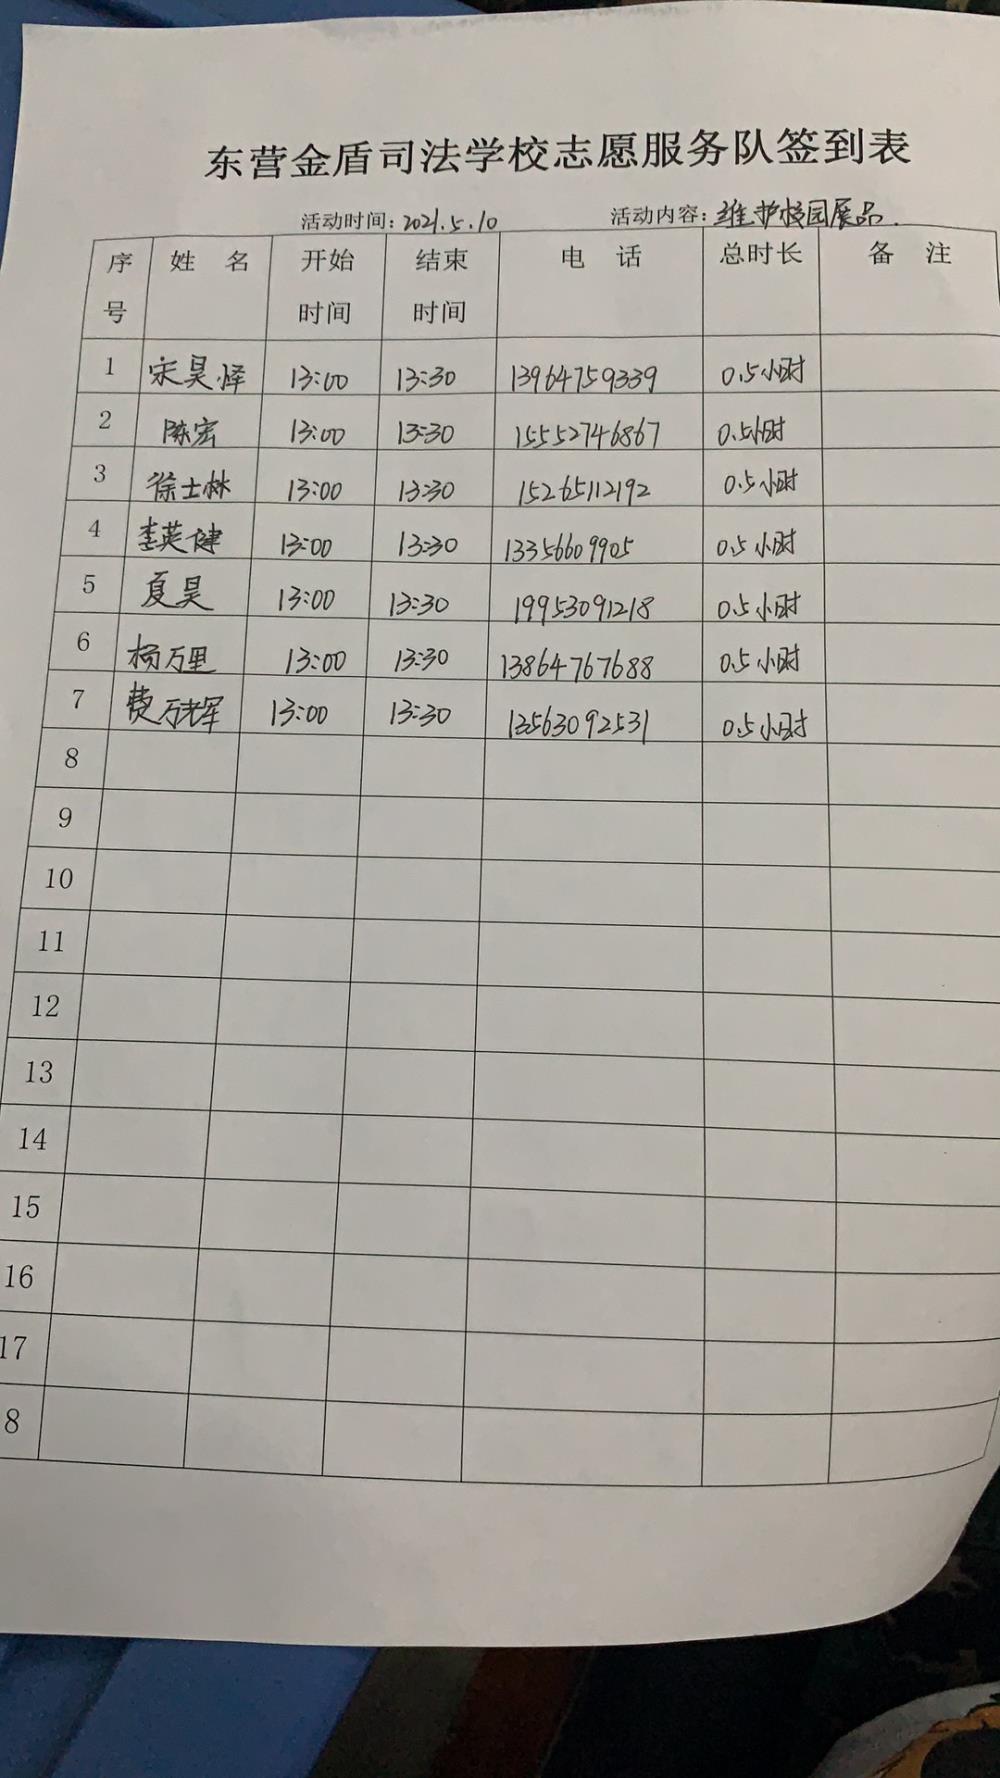 东营金盾司法学校志愿服务队签到表
活动时间：2021.5.10 活动内容：维护校园展品.
序号 姓名 开始时间 结束时间 电话 总时长 备注
1 宋昊怿 13:00 13:30 13964759339 0.5小时
2 陈宏 13:00 13:30 15552746867 0.5小时
3 徐士林 13:00 13:30 15265112192 0.5小时
4 李英健 13:00 13:30 13356609905 0.5小时
5 夏昊 13:00 13:30 19953091218 0.5小时
6 杨万里 13:00 13:30 13864767688 0.5小时
7 费万辉 13:00 13:30 13563092531 0.5小时
8
9
10
11
12
13
14
15
16
17
8